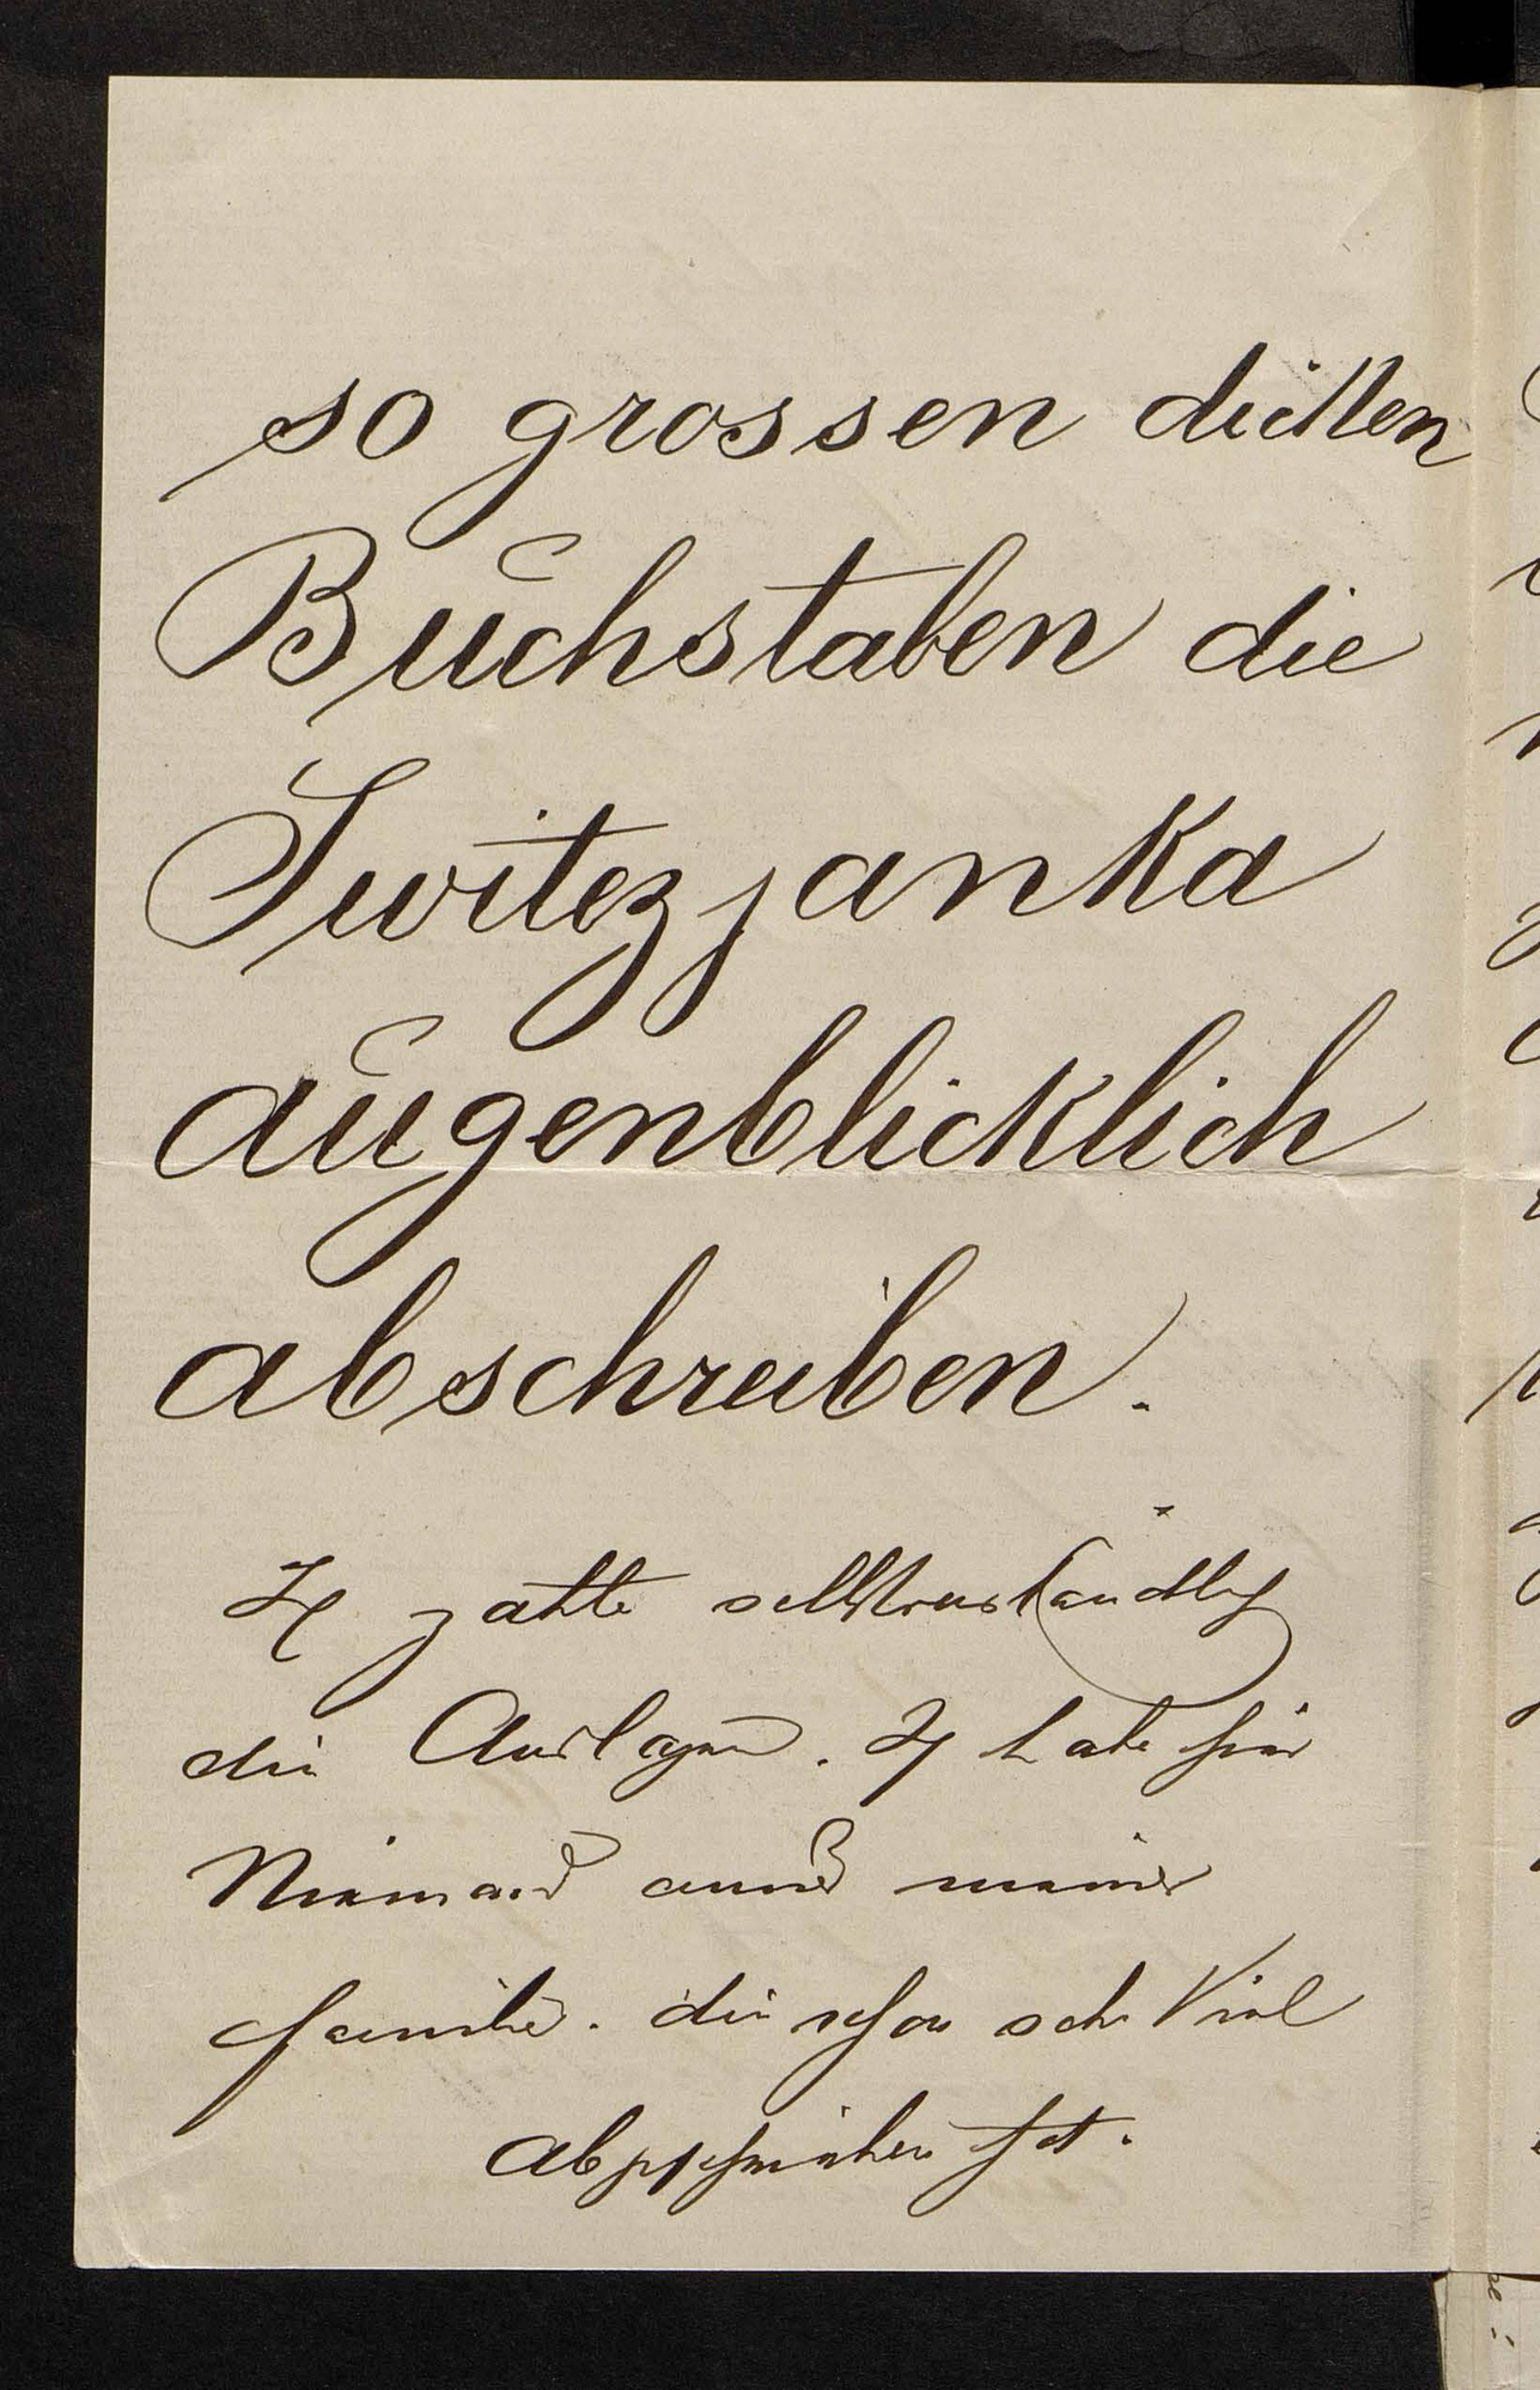 so grossen dicken
Buchstaben die
Switezjanka
augenblicklich
abschreiben.
Ich zahle selbstverständlich
die Auslagen. Ich habe hier
Niemand ausser meiner
Familie. die schon sehr Viel
abgeschrieben hat.